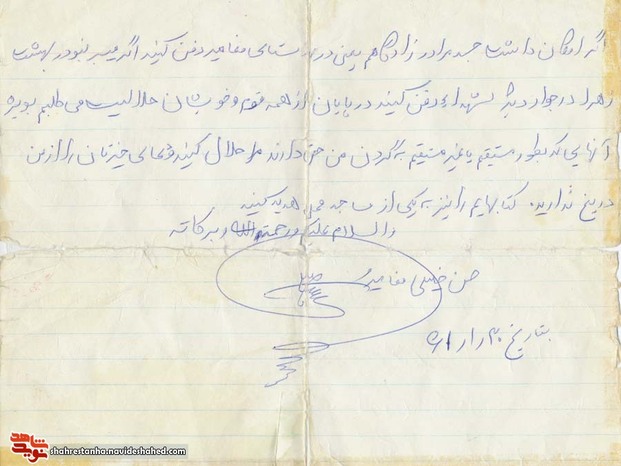 اگر امکان داشت جسدم را در زادگاهم یعنی در روستای مغامیر دفن کنید اگر میسر نبود در بهشت
زهرا در جوار دیگر شهداء دفن کنید در پایان از همه قوم و خویشان حلالیت می طلبم بویژه
آنهایی که بطور مستقیم یا غیر مستقیم به گردن من حق دارند مرا حلال کنید و دعای خیرتان را از من
دریغ ندارید. کتابهایم را نیز به یکی از مساجد محل هدیه کنید
والسلام علیکم و رحمته الله و برکاته
حسن خلیلی مغامیر
بتاریخ
شاهد
نوید
shahrestanha.navideshahed.com